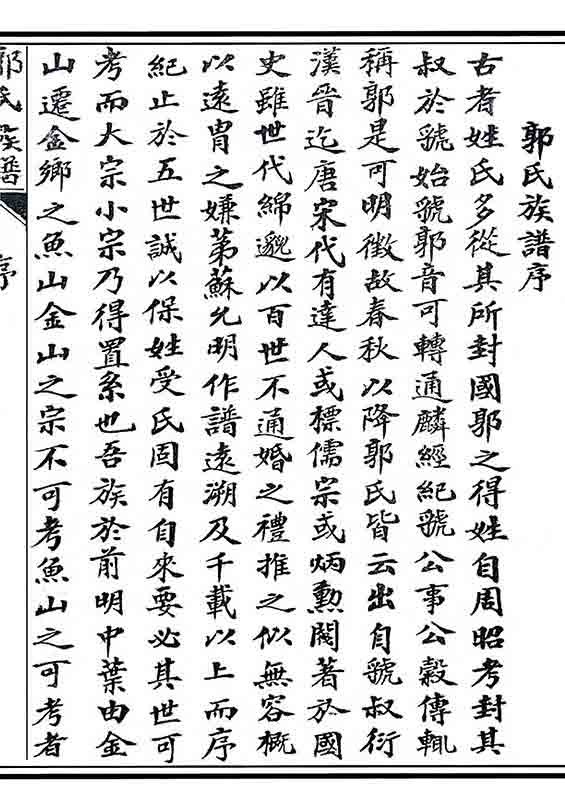 郭氏族譜序
古者姓氏多從其所封國郭之得姓自周昭考封其
叔於虢始虢郭音可轉通麟經紀虢公事公穀傳輒
稱郭是可明徵故春秋以降郭氏皆云出自虢叔衍
漢晉迄唐宋代有達人或標儒宗或炳勲閥著於國
史雖世代綿邈以百世不通婚之禮推之似無容概
以遠胄之嫌第蘇允明作譜遠溯及千載以上而序
紀止於五世誠以保姓受氏固有自來要必其世可
考而大宗小宗乃得置系也吾族於前明中葉由金
山遷金鄉之魚山金山之宗不可考魚山之可考者
郭氏族譜
序